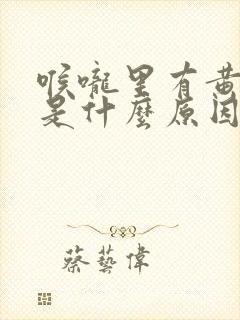 喉嚨里有黄
是什麼原因
蔡藝偉